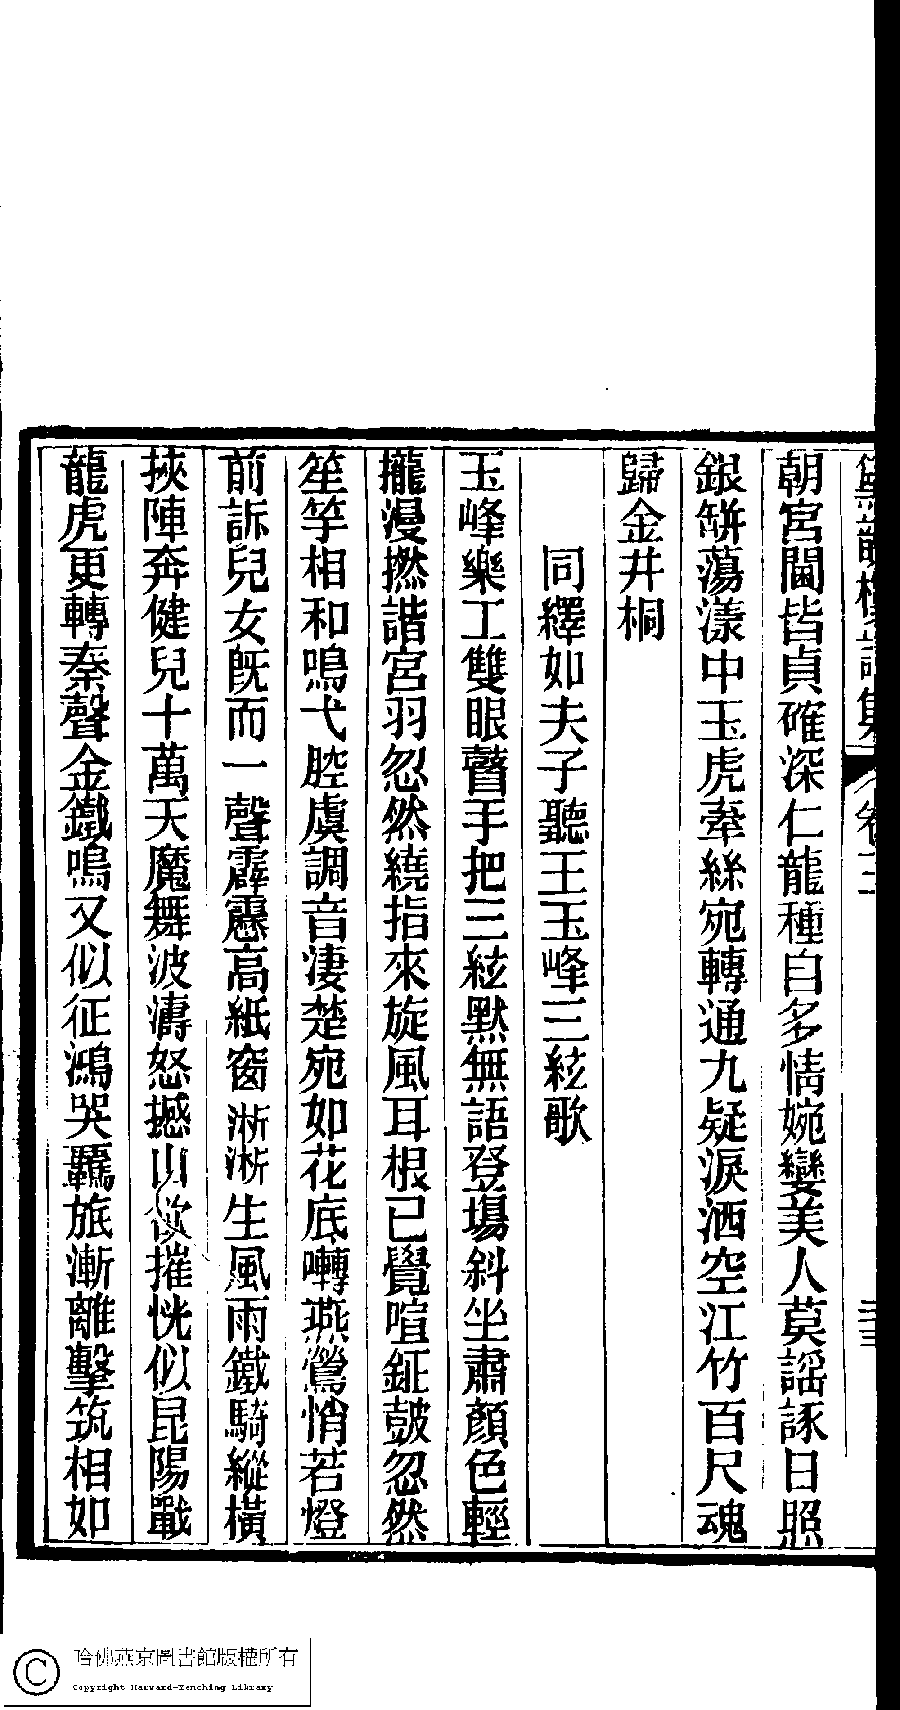 朝宮闈皆貞確深仁龍種自多情婉孌美人莫謡諑日照
銀缾蕩漾中玉虎牽絲宛轉通九疑淚洒空江竹百尺魂
歸金井桐
同繹如夫子聽王玉峰三絃歌
玉峰樂工雙眼瞽手把三絃默無語登場斜坐肅顏色輕
攏漫撚諧宮羽忽然繞指來旋風耳根已覺喧鉦鼓忽然
笙竽相和鳴弋腔虞調音淒楚宛如花底囀燕鶯悄若燈
前訴兒女旣而一聲霹靂高紙窗淅淅生風雨鐵騎縱橫
挾陣奔健兒十萬天魔舞波濤怒撼山欲摧恍似昆陽戰
龍虎更轉秦聲金鐵鳴又似征鴻哭羈旅漸離擊筑相如
哈佛燕京圖書館版權所有
Copyright Harvard-Yenching Library